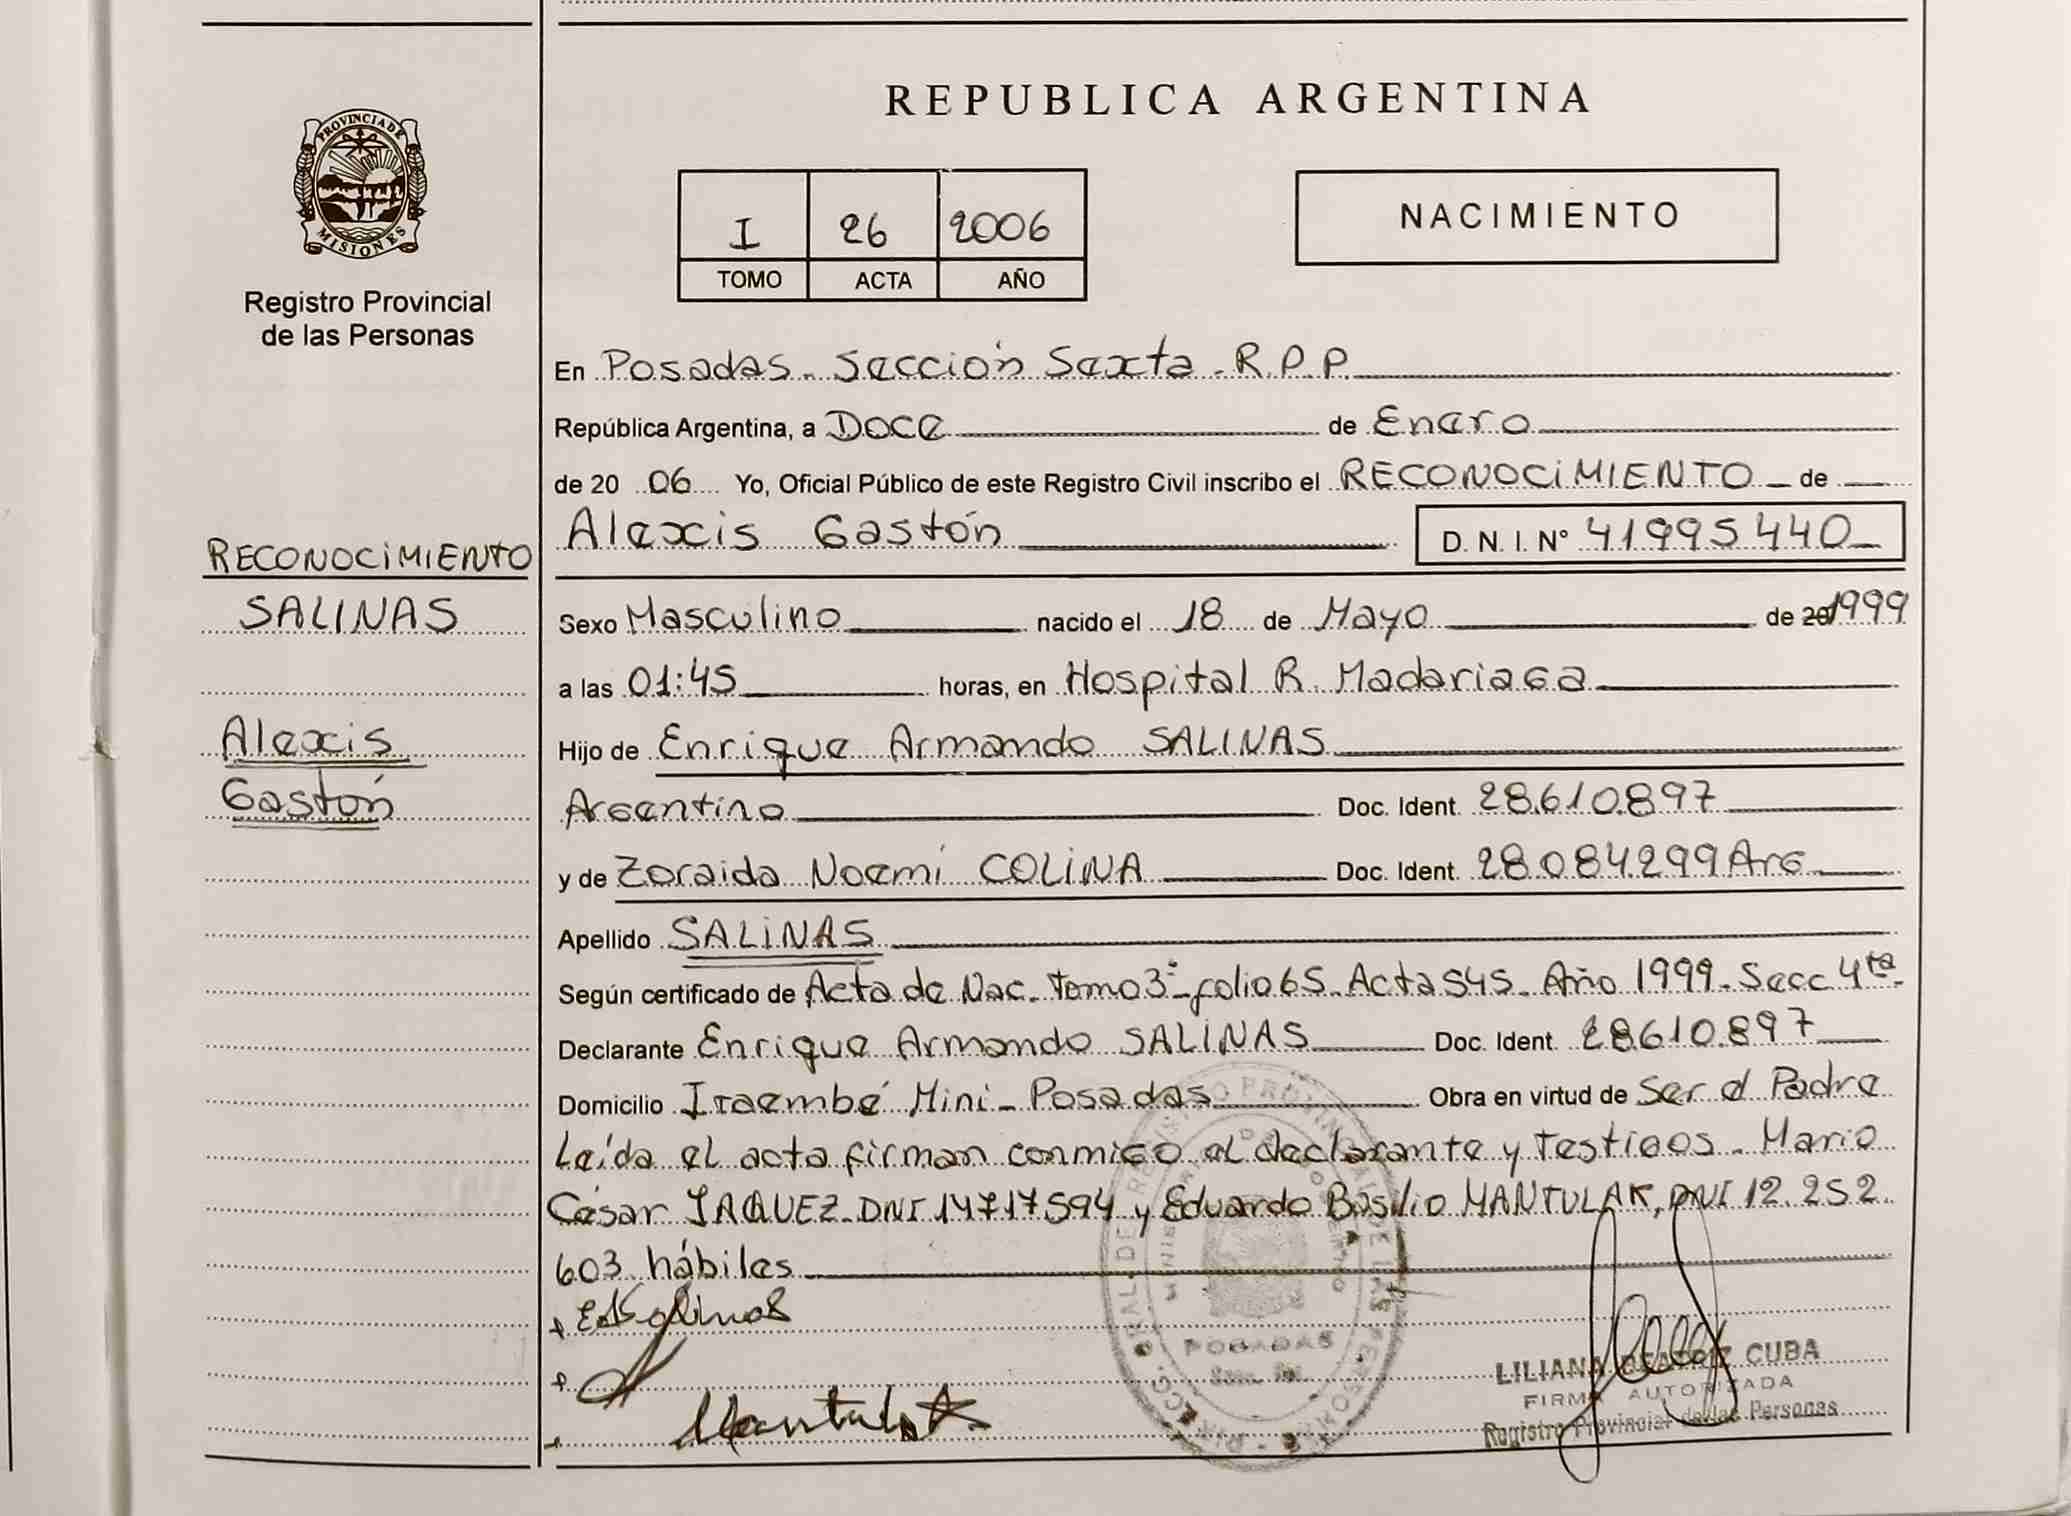 REPUBLICA ARGENTINA
PROVINCIA DE
MISIONES
Registro Provincial
de las Personas
I 26 2006
TOMO ACTA AÑO
NACIMIENTO
En Posadas. Sección Sexta. R.P.P.
República Argentina, a Doce de Enero
de 20 06 Yo, Oficial Público de este Registro Civil inscribo el RECONOCIMIENTO de
Alexis Gastón D. N. I. N° 41995440
RECONOCIMIENTO
SALINAS
Alexis
Gastón
Sexo Masculino nacido el 18 de Mayo de 20 1999
a las 01:45 horas, en Hospital R. Madariaga
Hijo de Enrique Armando SALINAS
Argentino Doc. Ident. 28.610.897
y de Zoraida Noemí COLINA Doc. Ident. 28.084.299 Arg
Apellido SALINAS
Según certificado de Acta de Nac. tomo 3° folio 65. Acta 545. Año 1999. Secc 4ta.
Declarante Enrique Armando SALINAS Doc. Ident. 28.610.897
Domicilio Itaembé Mini - Posadas Obra en virtud de Ser el Padre
Leída el acta firman conmigo el declarante y testigos. Mario
César JAQUEZ. DNI 14717594 y Eduardo Basilio MANTULAK, DNI 12.252
603 hábiles
POSADAS
LILIANA BEATRIZ CUBA
FIRMA AUTORIZADA
Registro Provincial de las Personas